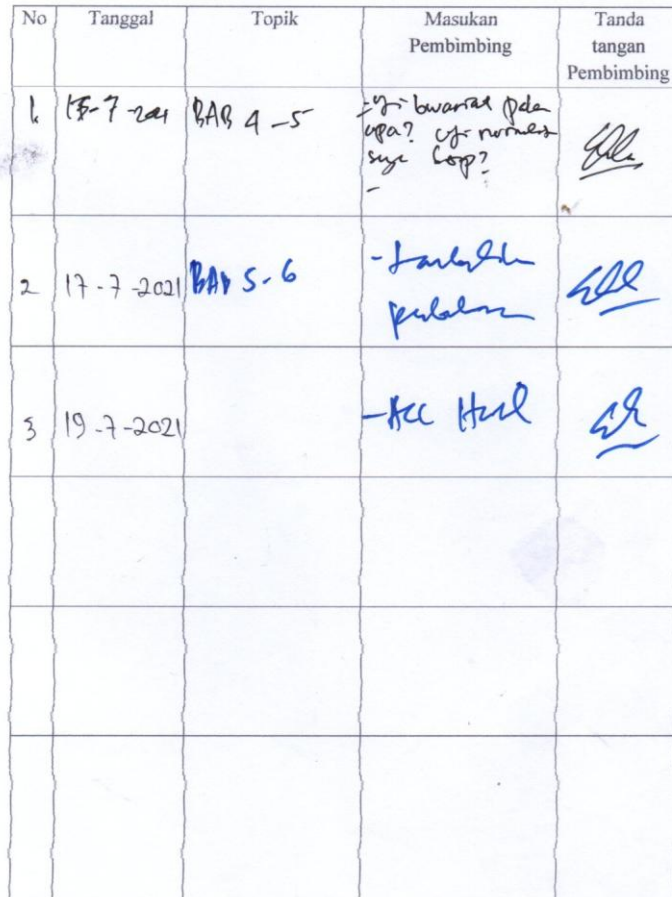 No Tanggal Topik Masukan Pembimbing Tanda tangan Pembimbing
1. 15-7-2021 BAB 4-5 - Uji bivariat pakai
apa? Uji normalitas
-
2 17-7-2021 BAB 5-6 -
3 19-7-2021 - Acc Hasil